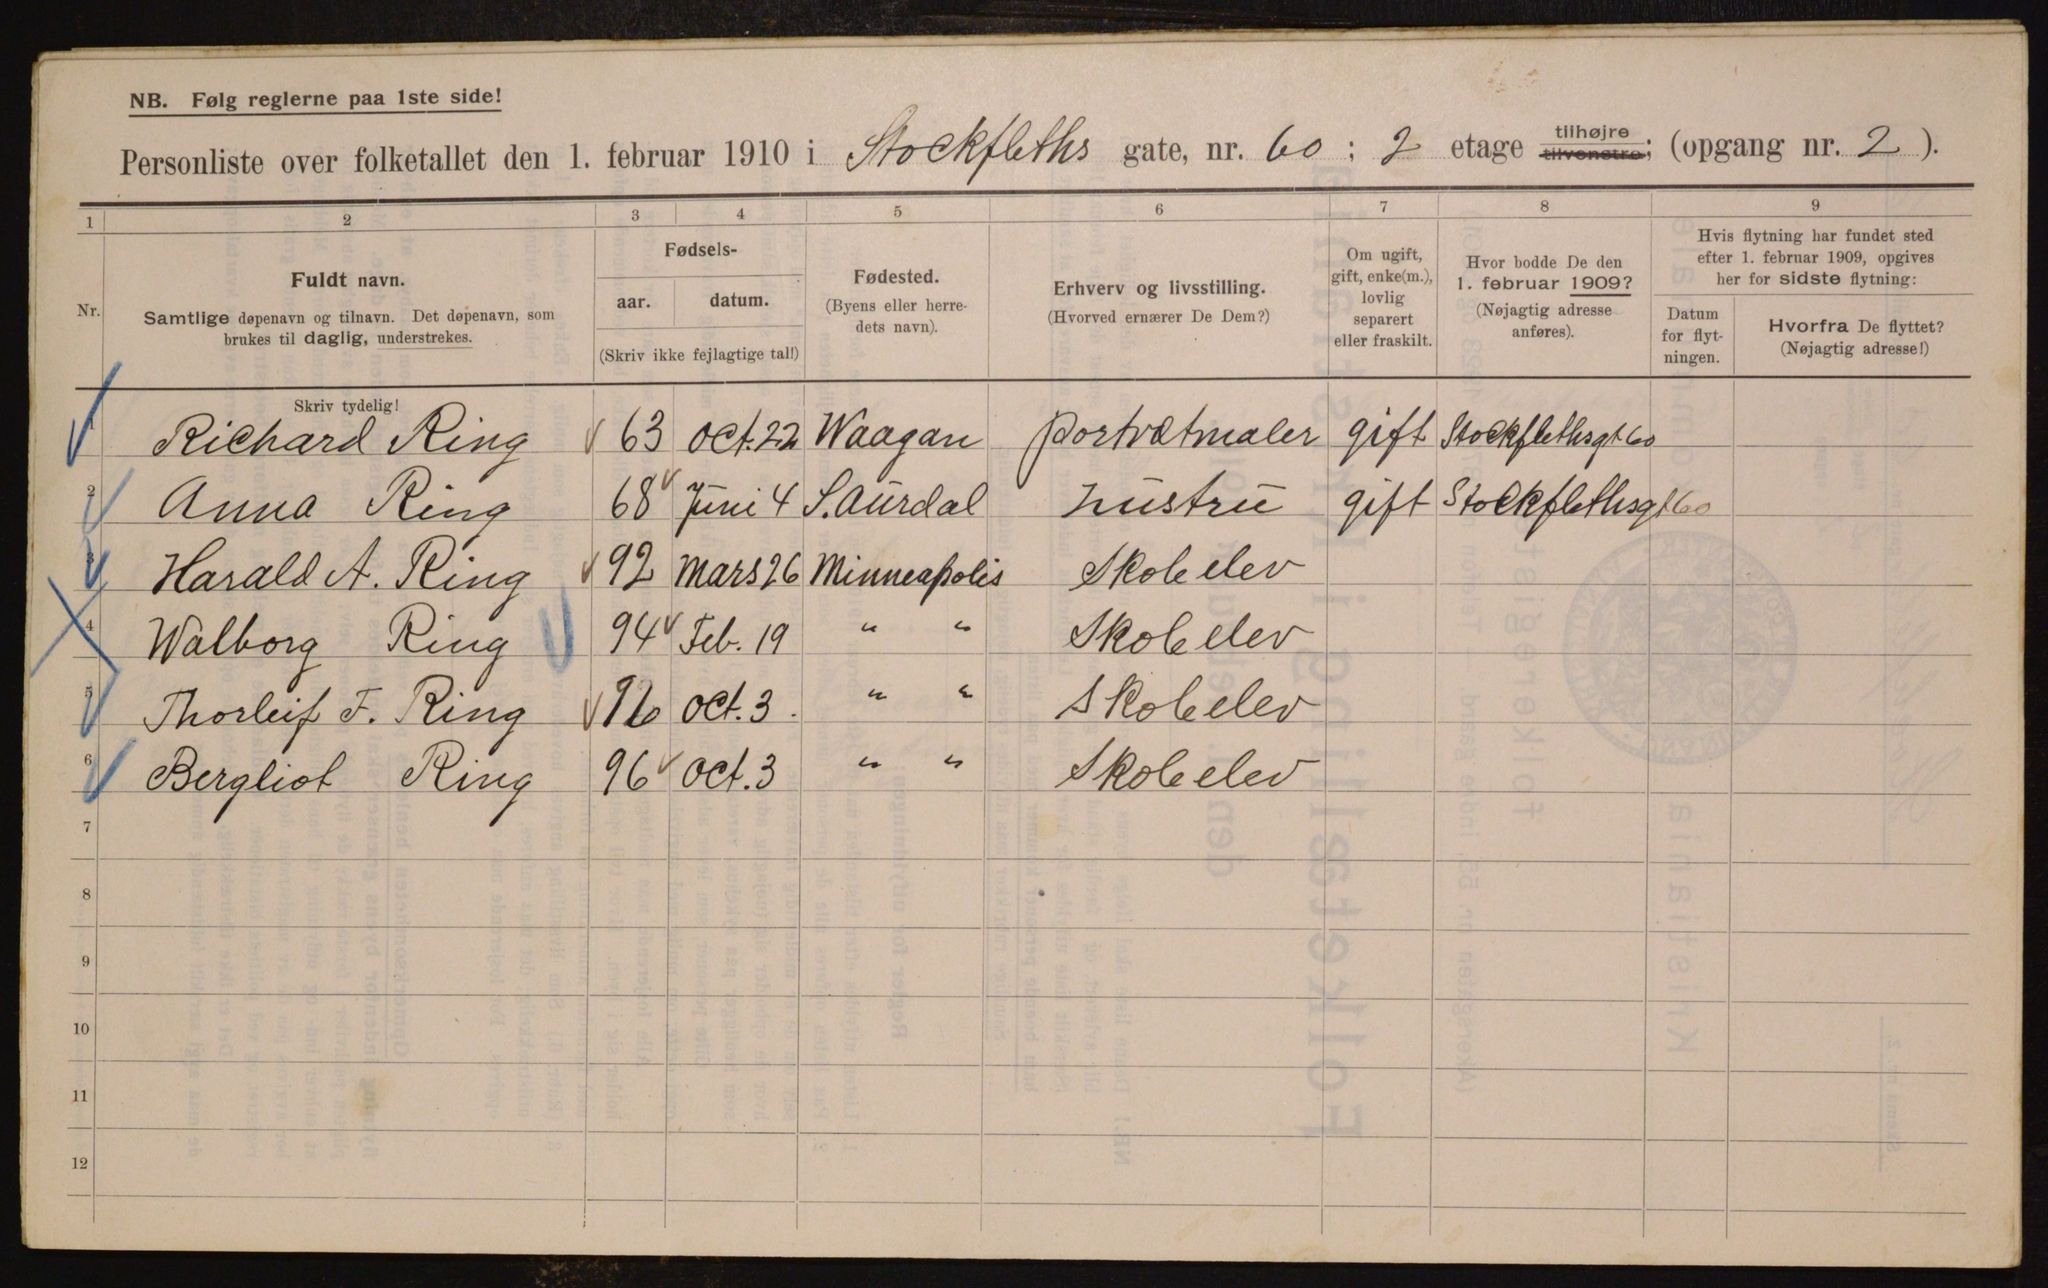 NB. Følg reglerne paa 1ste side!
Personliste over folketallet den 1. februar 1910 i Stockfleths gate, nr. 60 ; 2 etage tilhøjre tilvenstre; (opgang nr. 2 ).
1 2 3 4 5 6 7 8 9
Nr.
Fuldt navn.
Samtlige døpenavn og tilnavn. Det døpenavn, som
brukes til daglig, understrekes.
Fødsels-
aar. datum.
(Skriv ikke fejlagtige tal!)
Fødested.
(Byens eller herre-
dets navn).
Erhverv og livsstilling.
(Hvorved ernærer De Dem?)
Om ugift,
gift, enke(m.),
lovlig
separert
eller fraskilt.
Hvor bodde De den
1. februar 1909?
(Nøjagtig adresse
anføres).
Hvis flytning har fundet sted
efter 1. februar 1909, opgives
her for sidste flytning:
Datum
for flyt-
ningen.
Hvorfra De flyttet?
(Nøjagtig adresse!)
Skriv tydelig!
Richard Ring 63 Oct. 22 Waagan portrætmaler gift Stockflethsgt 60
2 Anna Ring 68 Juni 4 S. Aurdal hustru gift Stockflethsgt 60
3 Harald A. Ring 92 Mars 26 Minneapolis Skoleelev
4 Walborg Ring 94 Feb. 19 " " Skoleelev
5 Thorleif F. Ring 96 Oct. 3 " " Skoleelev
6 Bergliot Ring 96 Oct. 3 " " Skoleelev
7
8
9
10
11
12